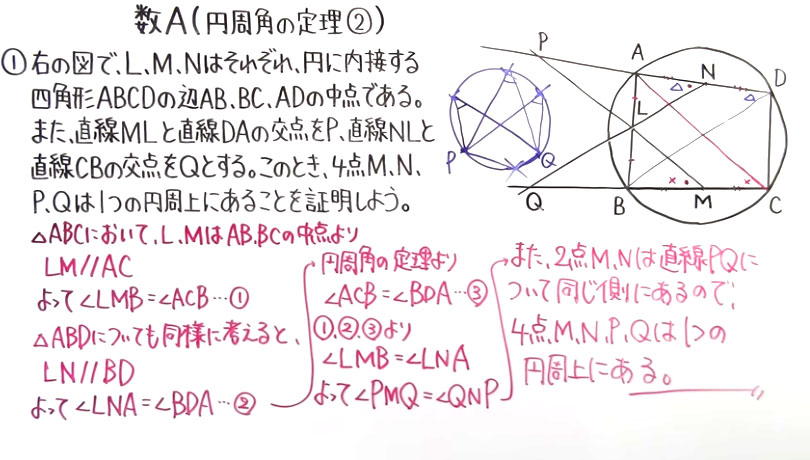 数A(円周角の定理②)
① 右の図で、L、M、Nはそれぞれ、円に内接する
四角形ABCDの辺AB、BC、ADの中点である。
また、直線MLと直線DAの交点をP、直線NLと
直線CBの交点をQとする。このとき、4点M、N、
P、Qは1つの円周上にあることを証明しよう。
P
Q
P
A
N
D
L
Q
B
M
C
△ABCにおいて、L、MはAB、BCの中点より
LM//AC
よって∠LMB=∠ACB…①
△ABDについても同様に考えると、
LN//BD
よって∠LNA=∠BDA…②
円周角の定理より
∠ACB=∠BDA…③
①、②、③より
∠LMB=∠LNA
よって∠PMQ=∠QNP
また、2点M、Nは直線PQに
ついて同じ側にあるので、
4点、M、N、P、Qは1つの
円周上にある。